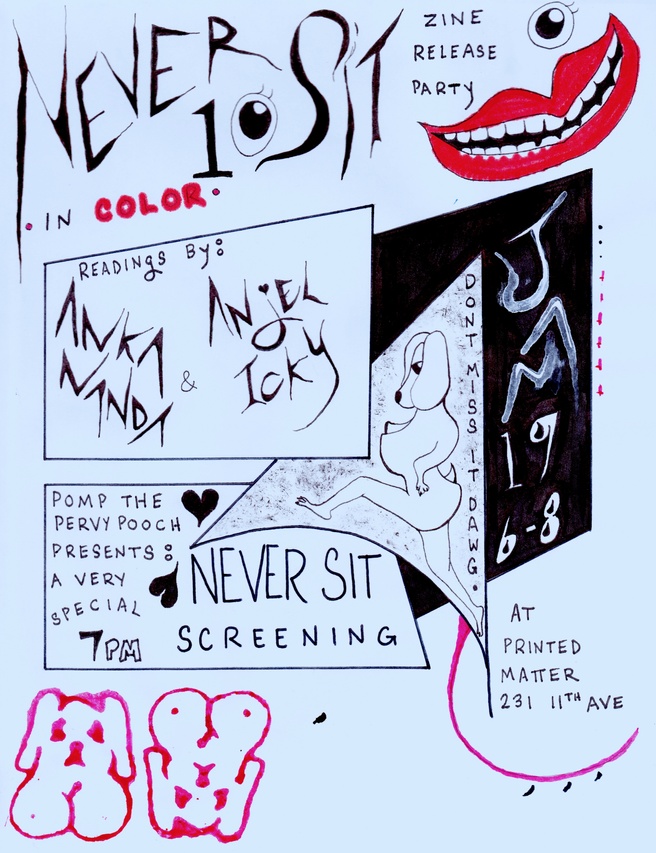 NEVER SIT
10
ZINE
RELEASE
PARTY
IN COLOR
READINGS BY:
ANKA
NANDA
&
ANJEL
ICKY
DONT MISS IT DAWG.
JAN
19
6-8
POMP THE
PERVY POOCH
PRESENTS:
A VERY
SPECIAL
7PM
NEVER SIT
SCREENING
AT
PRINTED
MATTER
231 11TH AVE